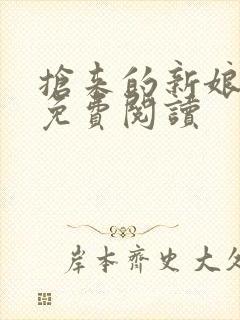 搶來的新娘
免費閱讀
岸本齊史大久